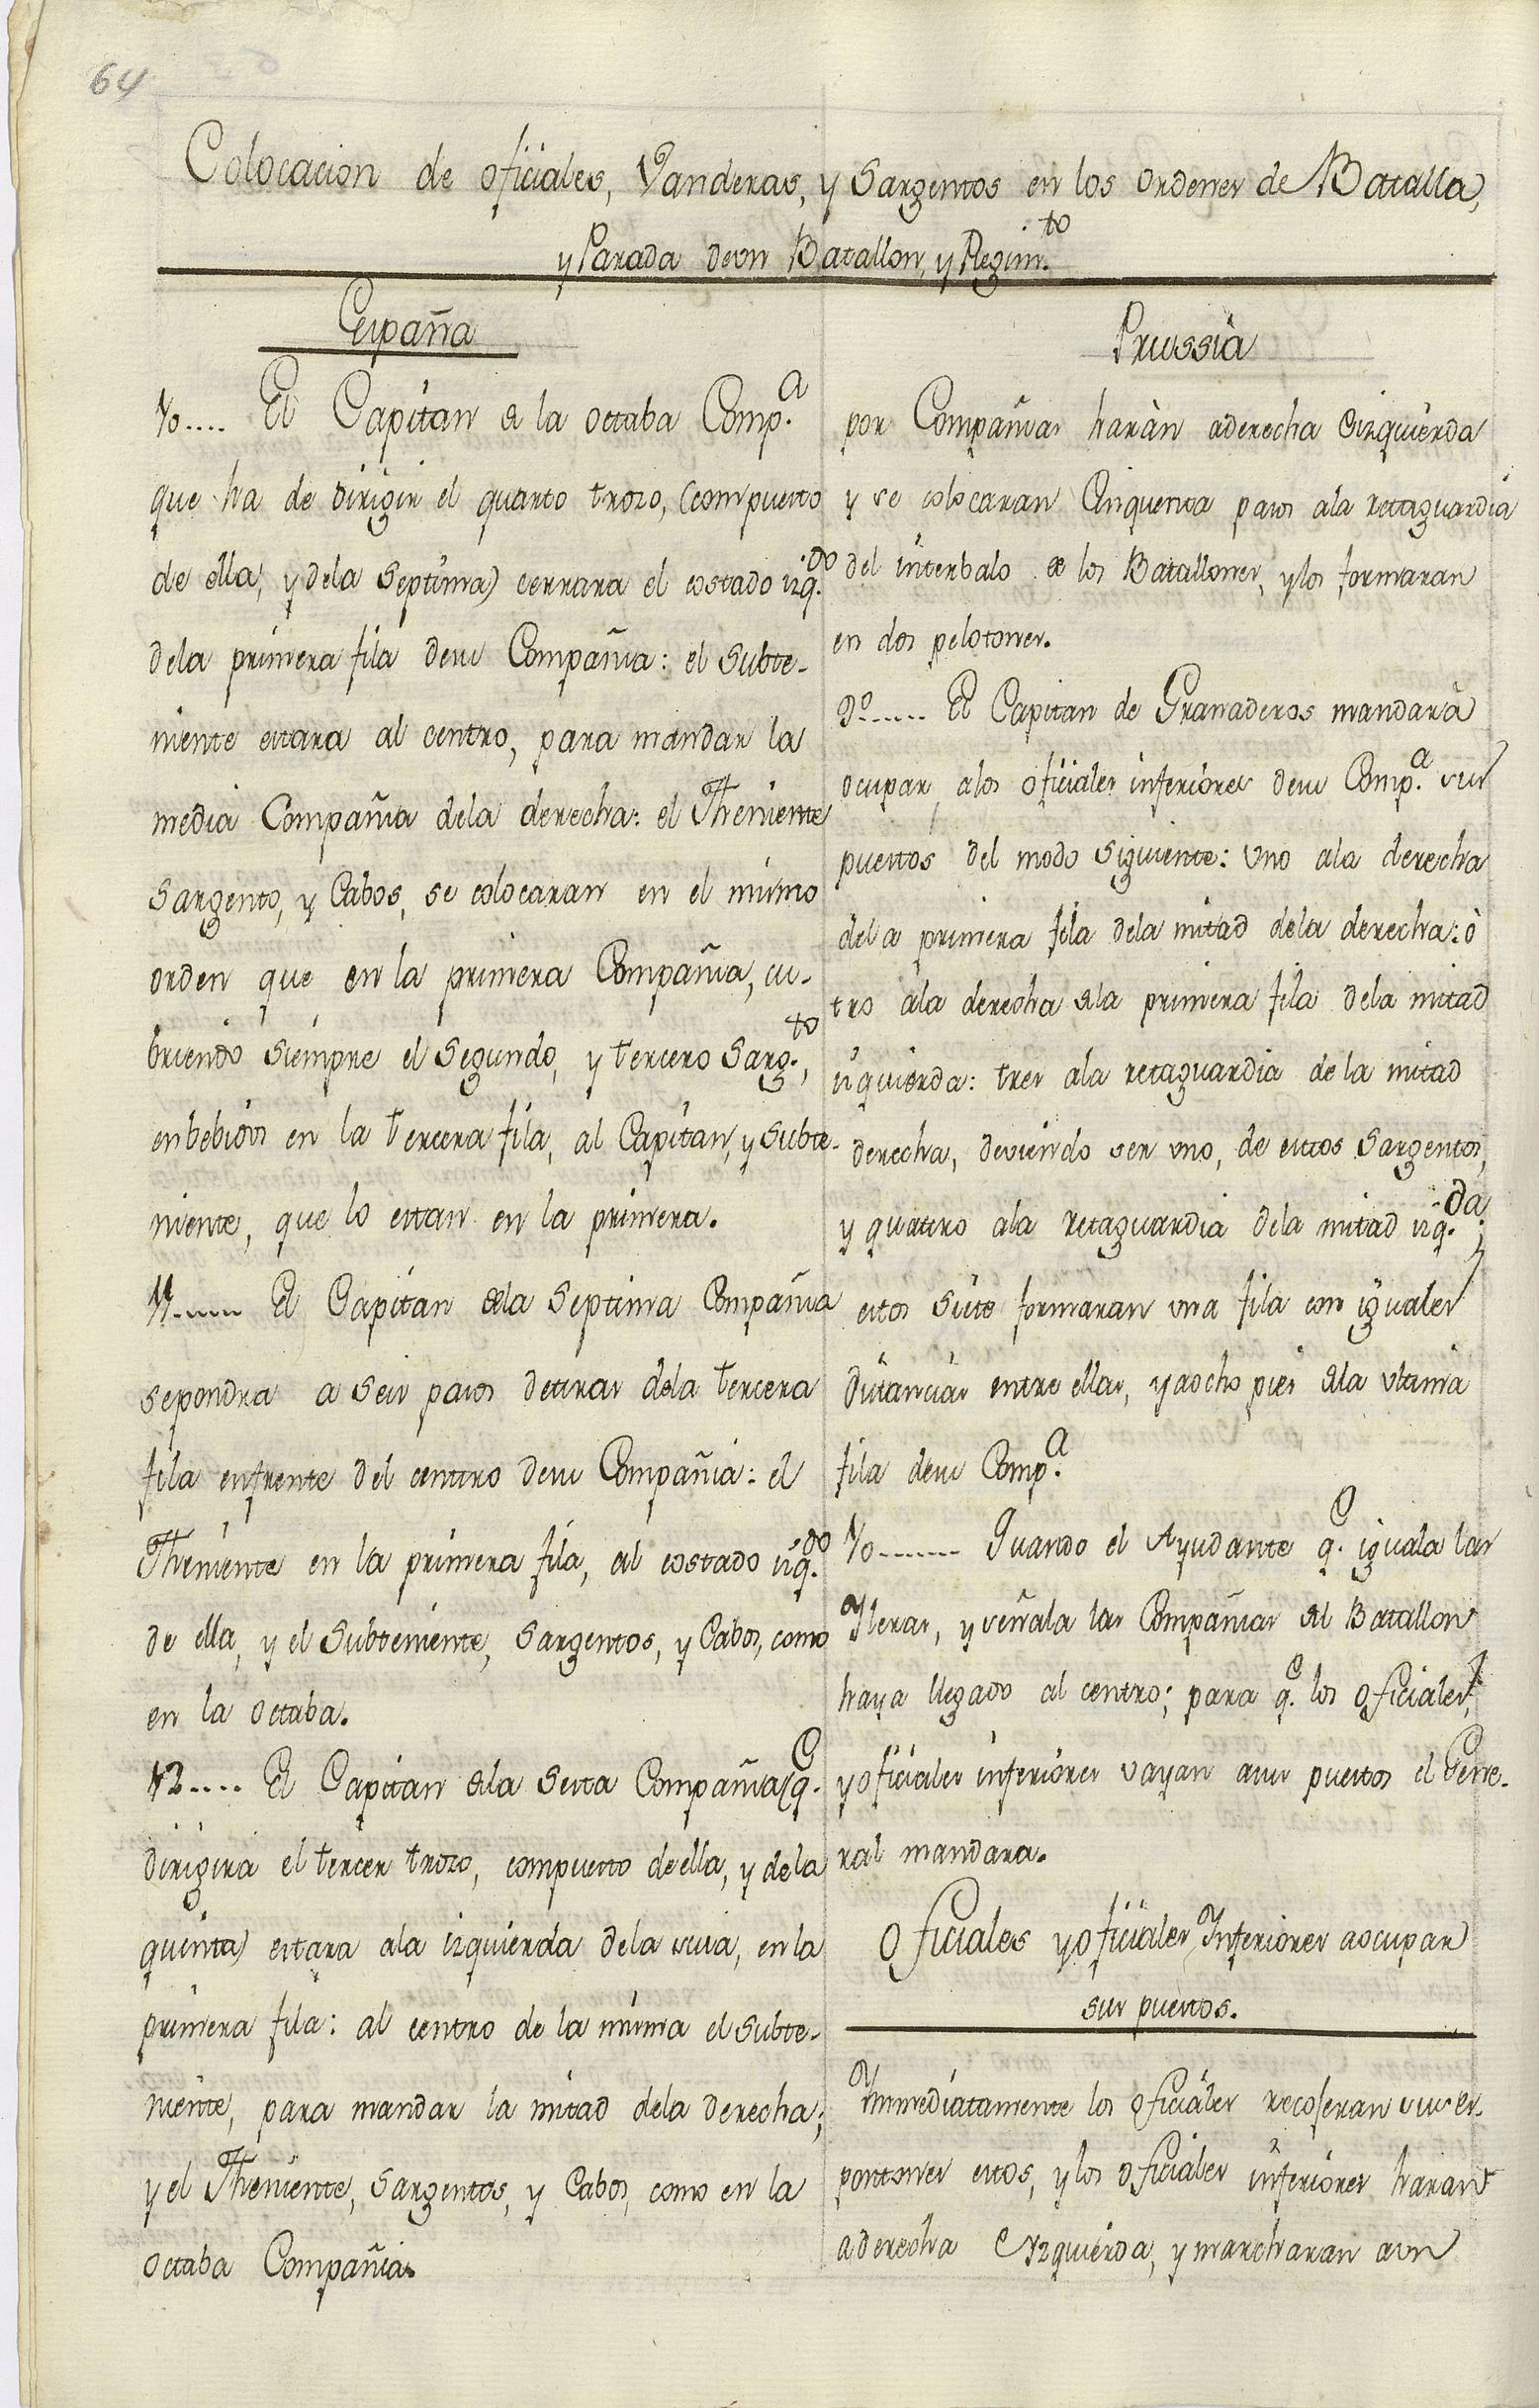 64
Colocacion de oficiales, Vanderas, y Sargentos en los ordenes de Batalla,
y Parada deun Batallon, y Regim.to
España
10.... El Capitan de la octaba Comp.a
que ha de dirigir el quarto trozo, (compuesto
de ella, y dela septima) cerrara el costado izq.do
dela primera fila desu Compañia: el Subte-
niente estara al centro, para mandar la
media Compañia dela derecha: el Theniente
Sargento, y Cabos, se colocaran en el mismo
orden que en la primera Compañia, cu-
briendo siempre el Segundo, y tercero Sarg.to,
enbebidos en la tercera fila, al Capitan, y Subte-
niente, que lo estan en la primera.
11..... El Capitan dela Septima Compañia
sepondra a seis pasos detras dela tercera
fila enfrente del centro desu Compañia: el
Theniente en la primera fila, al costado izq.do
de ella, y el Subteniente, Sargentos, y Cabos, como
en la octaba.
12.... El Capitan dela Sexta Compañia (q.e
dirigira el tercer trozo, compuesto de ella, y de la
quinta) estara ala izquierda dela suia, en la
primera fila: al centro de la misma el Subte-
niente, para mandar la mitad dela derecha;
y el Theniente, Sargentos, y Cabos, como en la
octaba Compañia.
Prussia
por Compañias haràn aderecha êizquierda
y se colocaran Cinquenta pasos ala retaguardia
del interbalo de los Batallones, y los formaran
en dos pelotones.
9º...... El Capitan de Granaderos mandarà
ocupar, alos oficiales inferiores desu Comp.a sus
puestos del modo siguiente: Uno ala derecha
dela primera fila dela mitad dela derecha: ò
tro ala derecha dela primera fila dela mitad
izquierda: tres ala retaguardia de la mitad
derecha, deviendo ser uno, de estos Sargentos,
y quatro ala retaguardia dela mitad izq.da;
estos siete formaran una fila con iguales
distancias entre ellas, y aocho pies dela ultima
fila desu Comp.a
10....... Quando el Ayudante q.e iguala las
Yleras, y señala las Compañias del Batallon
haya llegado al centro; para q.e los oficiales,
y oficiales inferiores vayan asus puestos el Gene-
ral mandara.
Oficiales y oficiales Inferiores aocupar
sus puestos.
Ynmediatamente los oficiales recojeran sus es-
pontones estos, y los oficiales inferiores haran
aderecha é Yzquierda, y marcharan aun